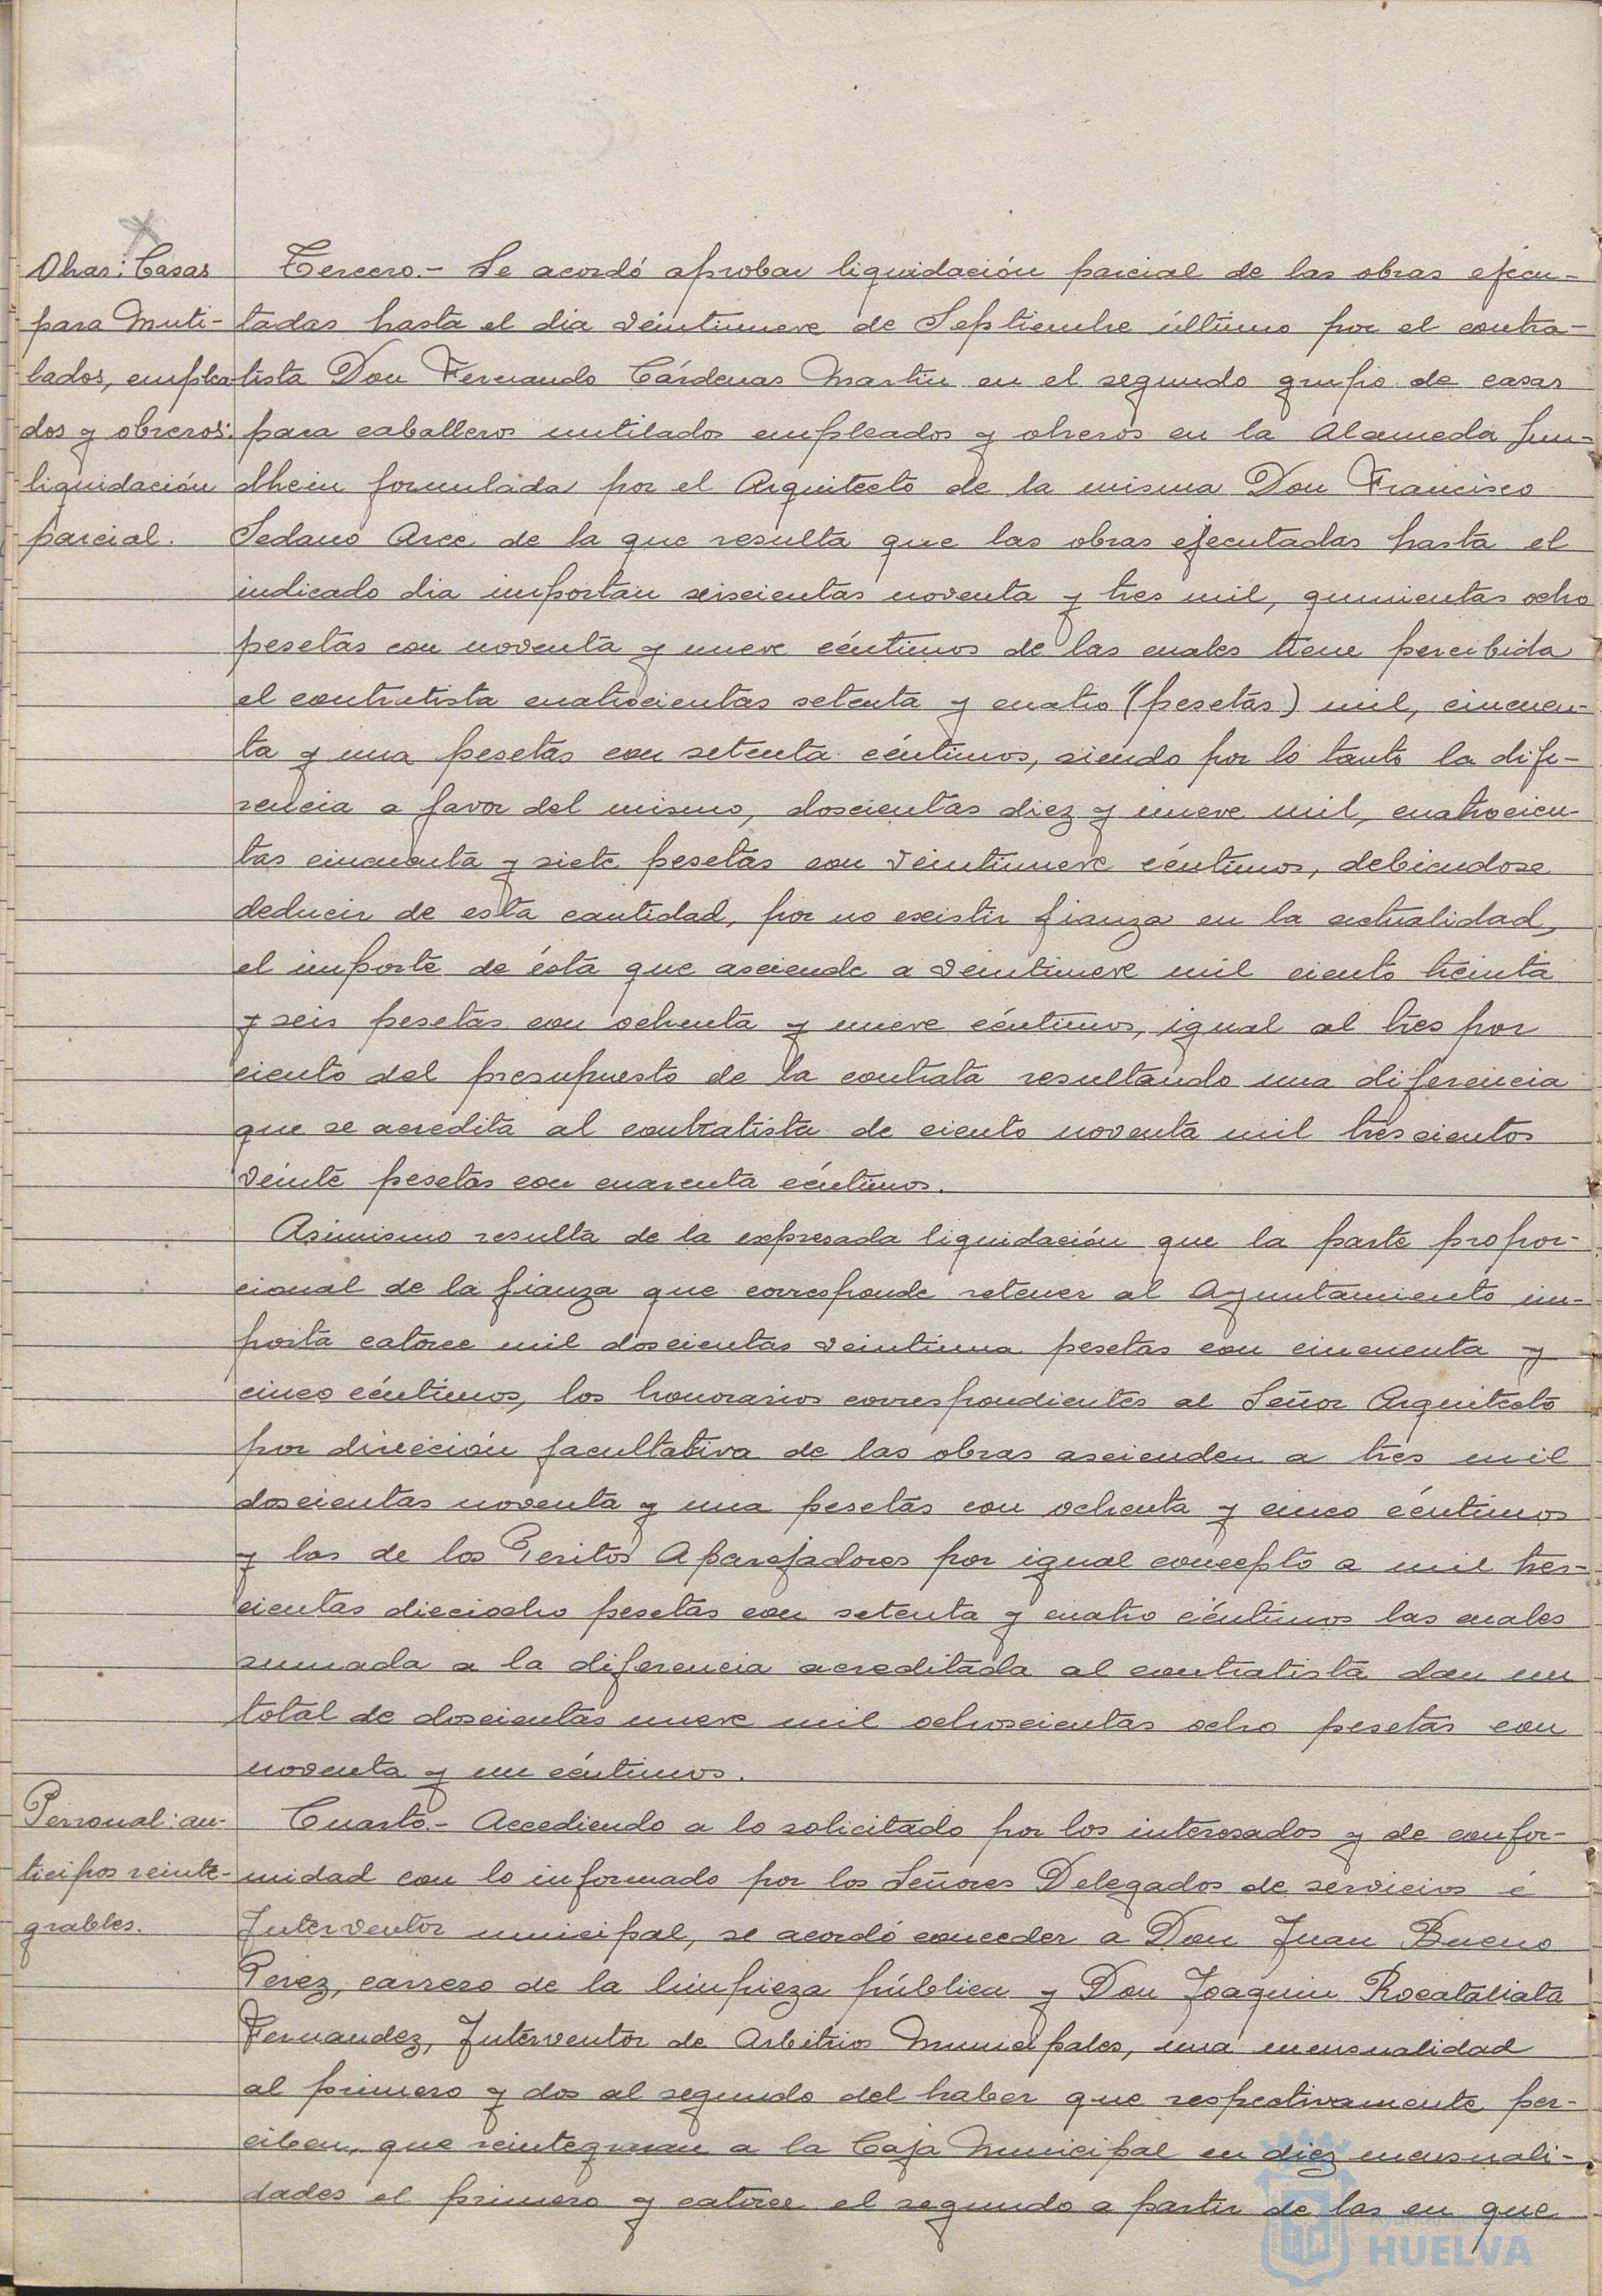 Obras: Casas
para Muti-
lados, emplea-
dos y obreros:
liquidación
parcial.
Tercero.- Se acordó aprobar liquidación parcial de las obras ejecu-
tadas hasta el dia veintinueve de Septiembre último por el contra-
tista Don Fernando Cárdenas Martin en el segundo grupo de casas
para caballeros mutilados empleados y obreros en la Alameda Sun-
dhein formulada por el Arquitecto de la misma Don Francisco
Sedano Arce de la que resulta que las obras ejecutadas hasta el
indicado dia importan seiscientas noventa y tres mil, quinientas ocho
pesetas con noventa y nueve céntimos de las cuales tiene percibida
el contratista cuatrocientas setenta y cuatro (pesetas) mil, cincuen-
ta y una pesetas con setenta céntimos, siendo por lo tanto la dife-
rencia a favor del mismo, doscientas diez y nueve mil, cuatrocien-
tas cincuenta y siete pesetas con veintinueve céntimos, debiendose
deducir de esta cantidad, por no existir fianza en la actualidad,
el importe de ésta que asciende a veintinueve mil ciento treinta
y seis pesetas con ochenta y nueve céntimos, igual al tres por
ciento del presupuesto de la contrata resultando una diferencia
que se acredita al contratista de ciento noventa mil trescientos
veinte pesetas con cuarenta céntimos.
Asimismo resulta de la expresada liquidación que la parte propor-
cional de la fianza que corresponde retener al Ayuntamiento im-
porta catorce mil doscientas veintiuna pesetas con cincuenta y
cinco céntimos, los honorarios correspondientes al Señor Arquitecto
por dirección facultativa de las obras ascienden a tres mil
doscientas noventa y una pesetas con ochenta y cinco céntimos
y las de los Peritos Aparejadores por igual concepto a mil tres-
cientas dieciocho pesetas con setenta y cuatro céntimos las cuales
sumada a la diferencia acreditada al contratista dan un
total de doscientas nueve mil ochoscientas ocho pesetas con
noventa y un céntimos.
Personal: an-
ticipos reinte-
grables.
Cuarto.- Accediendo a lo solicitado por los interesados y de confor-
midad con lo informado por los Señores Delegados de servicios é
Interventor municipal, se acordó conceder a Don Juan Bueno
Perez, carrero de la limpieza pública y Don Joaquin Rocataliata
Fernandez, Interventor de Arbitrios Municipales, una mensualidad
al primero y dos al segundo del haber que respectivamente per-
ciben, que reintegraran a la Caja Municipal en diez mensuali-
dades el primero y catorce el segundo a partir de las en que
HUELVA